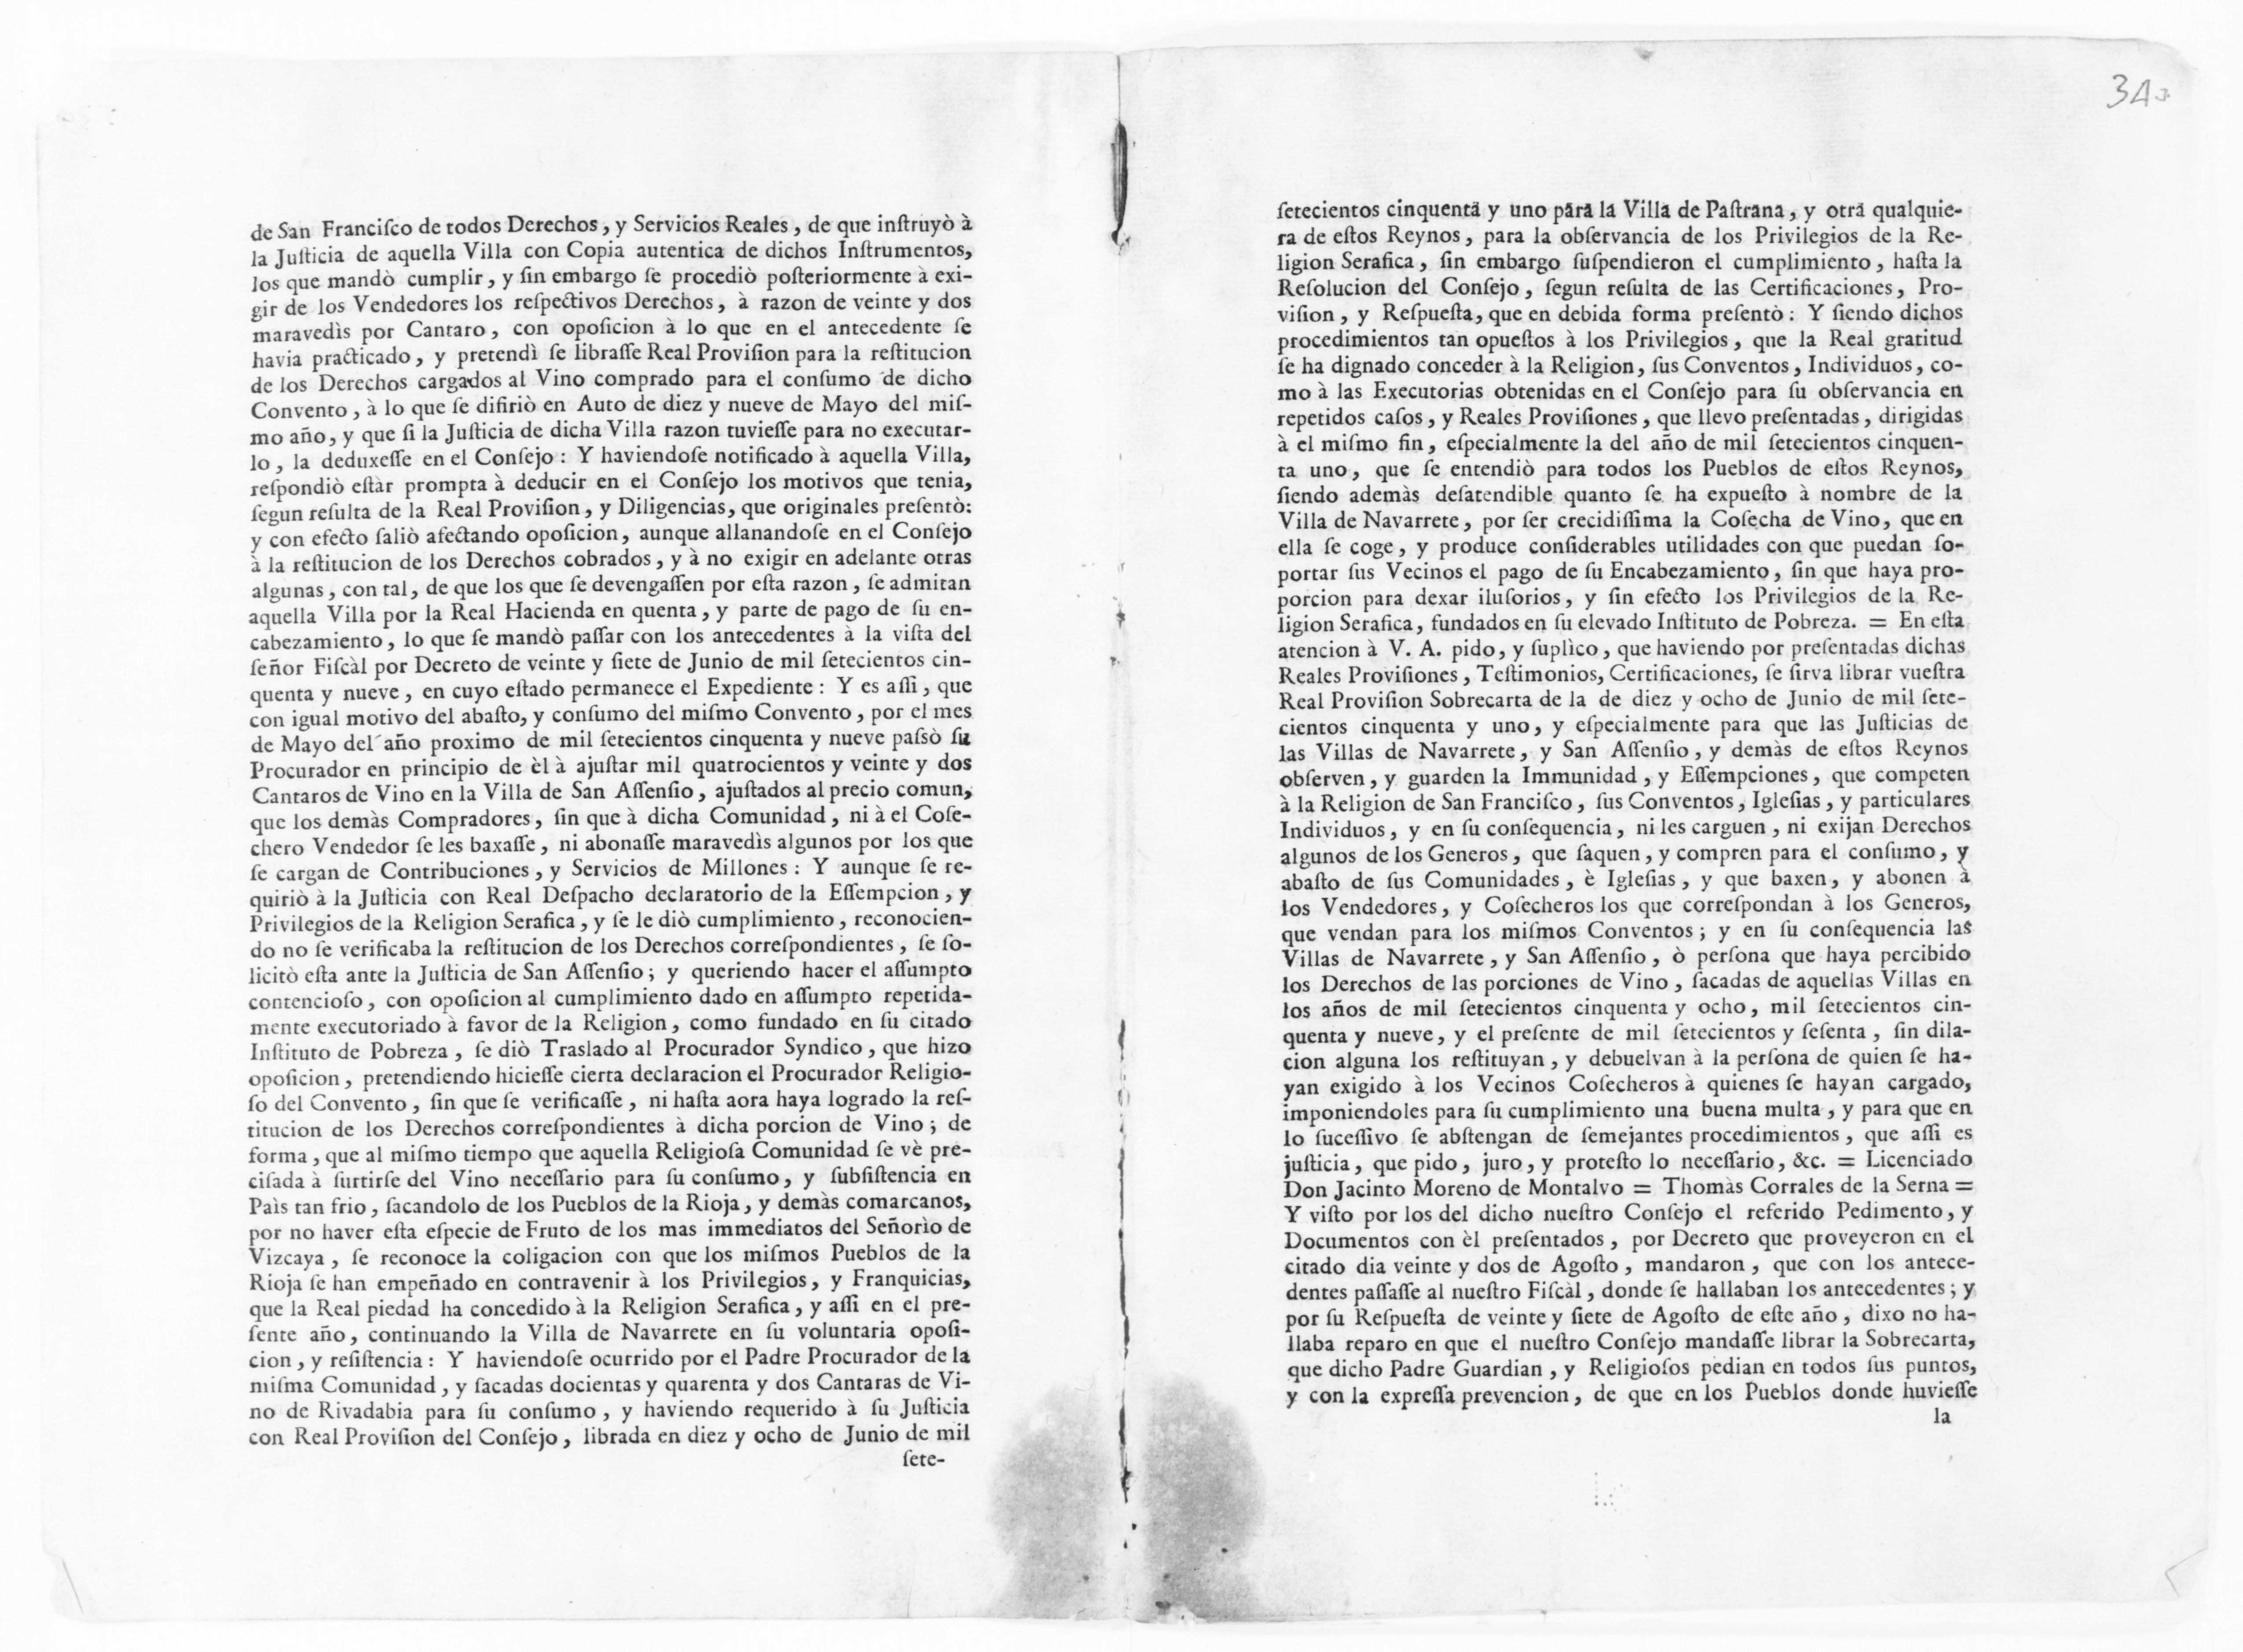 de San Franciſco de todos Derechos, y Servicios Reales, de que inſtruyò à
la Juſticia de aquella Villa con Copia autentica de dichos Inſtrumentos,
los que mandò cumplir, y ſin embargo ſe procediò poſteriormente à exi-
gir de los Vendedores los reſpectivos Derechos, à razon de veinte y dos
maravedìs por Cantaro, con opoſicion à lo que en el antecedente ſe
havia practicado, y pretendì ſe libraſſe Real Proviſion para la reſtitucion
de los Derechos cargados al Vino comprado para el conſumo de dicho
Convento, à lo que ſe difiriò en Auto de diez y nueve de Mayo del miſ-
mo año, y que ſi la Juſticia de dicha Villa razon tuvieſſe para no executar-
lo, la deduxeſſe en el Conſejo: Y haviendoſe notificado à aquella Villa,
reſpondiò eſtàr prompta à deducir en el Conſejo los motivos que tenia,
ſegun reſulta de la Real Proviſion, y Diligencias, que originales preſentò:
y con efecto ſaliò afectando opoſicion, aunque allanandoſe en el Conſejo
à la reſtitucion de los Derechos cobrados, y à no exigir en adelante otras
algunas, con tal, de que los que ſe devengaſſen por eſta razon, ſe admitan
aquella Villa por la Real Hacienda en quenta, y parte de pago de ſu en-
cabezamiento, lo que ſe mandò paſſar con los antecedentes à la viſta del
ſeñor Fiſcàl por Decreto de veinte y ſiete de Junio de mil ſetecientos cin-
quenta y nueve, en cuyo eſtado permanece el Expediente: Y es aſſi, que
con igual motivo del abaſto, y conſumo del miſmo Convento, por el mes
de Mayo del año proximo de mil ſetecientos cinquenta y nueve paſsò ſu
Procurador en principio de èl à ajuſtar mil quatrocientos y veinte y dos
Cantaros de Vino en la Villa de San Aſſenſio, ajuſtados al precio comun,
que los demàs Compradores, ſin que à dicha Comunidad, ni à el Coſe-
chero Vendedor ſe les baxaſſe, ni abonaſſe maravedìs algunos por los que
ſe cargan de Contribuciones, y Servicios de Millones: Y aunque ſe re-
quiriò à la Juſticia con Real Deſpacho declaratorio de la Eſſempcion, y
Privilegios de la Religion Serafica, y ſe le diò cumplimiento, reconocien-
do no ſe verificaba la reſtitucion de los Derechos correſpondientes, ſe ſo-
licitò eſta ante la Juſticia de San Aſſenſio; y queriendo hacer el aſſumpto
contencioſo, con opoſicion al cumplimiento dado en aſſumpto repetida-
mente executoriado à favor de la Religion, como fundado en ſu citado
Inſtituto de Pobreza, ſe diò Traslado al Procurador Syndico, que hizo
opoſicion, pretendiendo hicieſſe cierta declaracion el Procurador Religio-
ſo del Convento, ſin que ſe verificaſſe, ni haſta aora haya logrado la reſ-
titucion de los Derechos correſpondientes à dicha porcion de Vino; de
forma, que al miſmo tiempo que aquella Religioſa Comunidad ſe vè pre-
ciſada à ſurtirſe del Vino neceſſario para ſu conſumo, y ſubſiſtencia en
Paìs tan frio, ſacandolo de los Pueblos de la Rioja, y demàs comarcanos,
por no haver eſta eſpecie de Fruto de los mas immediatos del Señorìo de
Vizcaya, ſe reconoce la coligacion con que los miſmos Pueblos de la
Rioja ſe han empeñado en contravenir à los Privilegios, y Franquicias,
que la Real piedad ha concedido à la Religion Serafica, y aſſi en el pre-
ſente año, continuando la Villa de Navarrete en ſu voluntaria opoſi-
cion, y reſiſtencia: Y haviendoſe ocurrido por el Padre Procurador de la
miſma Comunidad, y ſacadas docientas y quarenta y dos Cantaras de Vi-
no de Rivadabia para ſu conſumo, y haviendo requerido à ſu Juſticia
con Real Proviſion del Conſejo, librada en diez y ocho de Junio de mil
ſete-
343
ſetecientos cinquenta y uno para la Villa de Paſtrana, y otra qualquie-
ra de eſtos Reynos, para la obſervancia de los Privilegios de la Re-
ligion Serafica, ſin embargo ſuſpendieron el cumplimiento, haſta la
Reſolucion del Conſejo, ſegun reſulta de las Certificaciones, Pro-
viſion, y Reſpueſta, que en debida forma preſentò: Y ſiendo dichos
procedimientos tan opueſtos à los Privilegios, que la Real gratitud
ſe ha dignado conceder à la Religion, ſus Conventos, Individuos, co-
mo à las Executorias obtenidas en el Conſejo para ſu obſervancia en
repetidos caſos, y Reales Proviſiones, que llevo preſentadas, dirigidas
à el miſmo fin, eſpecialmente la del año de mil ſetecientos cinquen-
ta uno, que ſe entendiò para todos los Pueblos de eſtos Reynos,
ſiendo ademàs deſatendible quanto ſe ha expueſto à nombre de la
Villa de Navarrete, por ſer crecidiſſima la Coſecha de Vino, que en
ella ſe coge, y produce conſiderables utilidades con que puedan ſo-
portar ſus Vecinos el pago de ſu Encabezamiento, ſin que haya pro-
porcion para dexar iluſorios, y ſin efecto los Privilegios de la Re-
ligion Serafica, fundados en ſu elevado Inſtituto de Pobreza. = En eſta
atencion à V. A. pido, y ſuplìco, que haviendo por preſentadas dichas
Reales Proviſiones, Teſtimonios, Certificaciones, ſe ſirva librar vueſtra
Real Proviſion Sobrecarta de la de diez y ocho de Junio de mil ſete-
cientos cinquenta y uno, y eſpecialmente para que las Juſticias de
las Villas de Navarrete, y San Aſſenſio, y demàs de eſtos Reynos
obſerven, y guarden la Immunidad, y Eſſempciones, que competen
à la Religion de San Franciſco, ſus Conventos, Igleſias, y particulares
Individuos, y en ſu conſequencia, ni les carguen, ni exijan Derechos
algunos de los Generos, que ſaquen, y compren para el conſumo, y
abaſto de ſus Comunidades, è Igleſias, y que baxen, y abonen à
los Vendedores, y Coſecheros los que correſpondan à los Generos,
que vendan para los miſmos Conventos; y en ſu conſequencia las
Villas de Navarrete, y San Aſſenſio, ò perſona que haya percibido
los Derechos de las porciones de Vino, ſacadas de aquellas Villas en
los años de mil ſetecientos cinquenta y ocho, mil ſetecientos cin-
quenta y nueve, y el preſente de mil ſetecientos y ſeſenta, ſin dila-
cion alguna los reſtituyan, y debuelvan à la perſona de quien ſe ha-
yan exigido à los Vecinos Coſecheros à quienes ſe hayan cargado,
imponiendoles para ſu cumplimiento una buena multa, y para que en
lo ſuceſſivo ſe abſtengan de ſemejantes procedimientos, que aſſi es
juſticia, que pido, juro, y proteſto lo neceſſario, &c. = Licenciado
Don Jacinto Moreno de Montalvo = Thomàs Corrales de la Serna =
Y viſto por los del dicho nueſtro Conſejo el referido Pedimento, y
Documentos con èl preſentados, por Decreto que proveyeron en el
citado dia veinte y dos de Agoſto, mandaron, que con los antece-
dentes paſſaſſe al nueſtro Fiſcàl, donde ſe hallaban los antecedentes; y
por ſu Reſpueſta de veinte y ſiete de Agoſto de eſte año, dixo no ha-
llaba reparo en que el nueſtro Conſejo mandaſſe librar la Sobrecarta,
que dicho Padre Guardian, y Religioſos pedian en todos ſus puntos,
y con la expreſſa prevencion, de que en los Pueblos donde huvieſſe
la